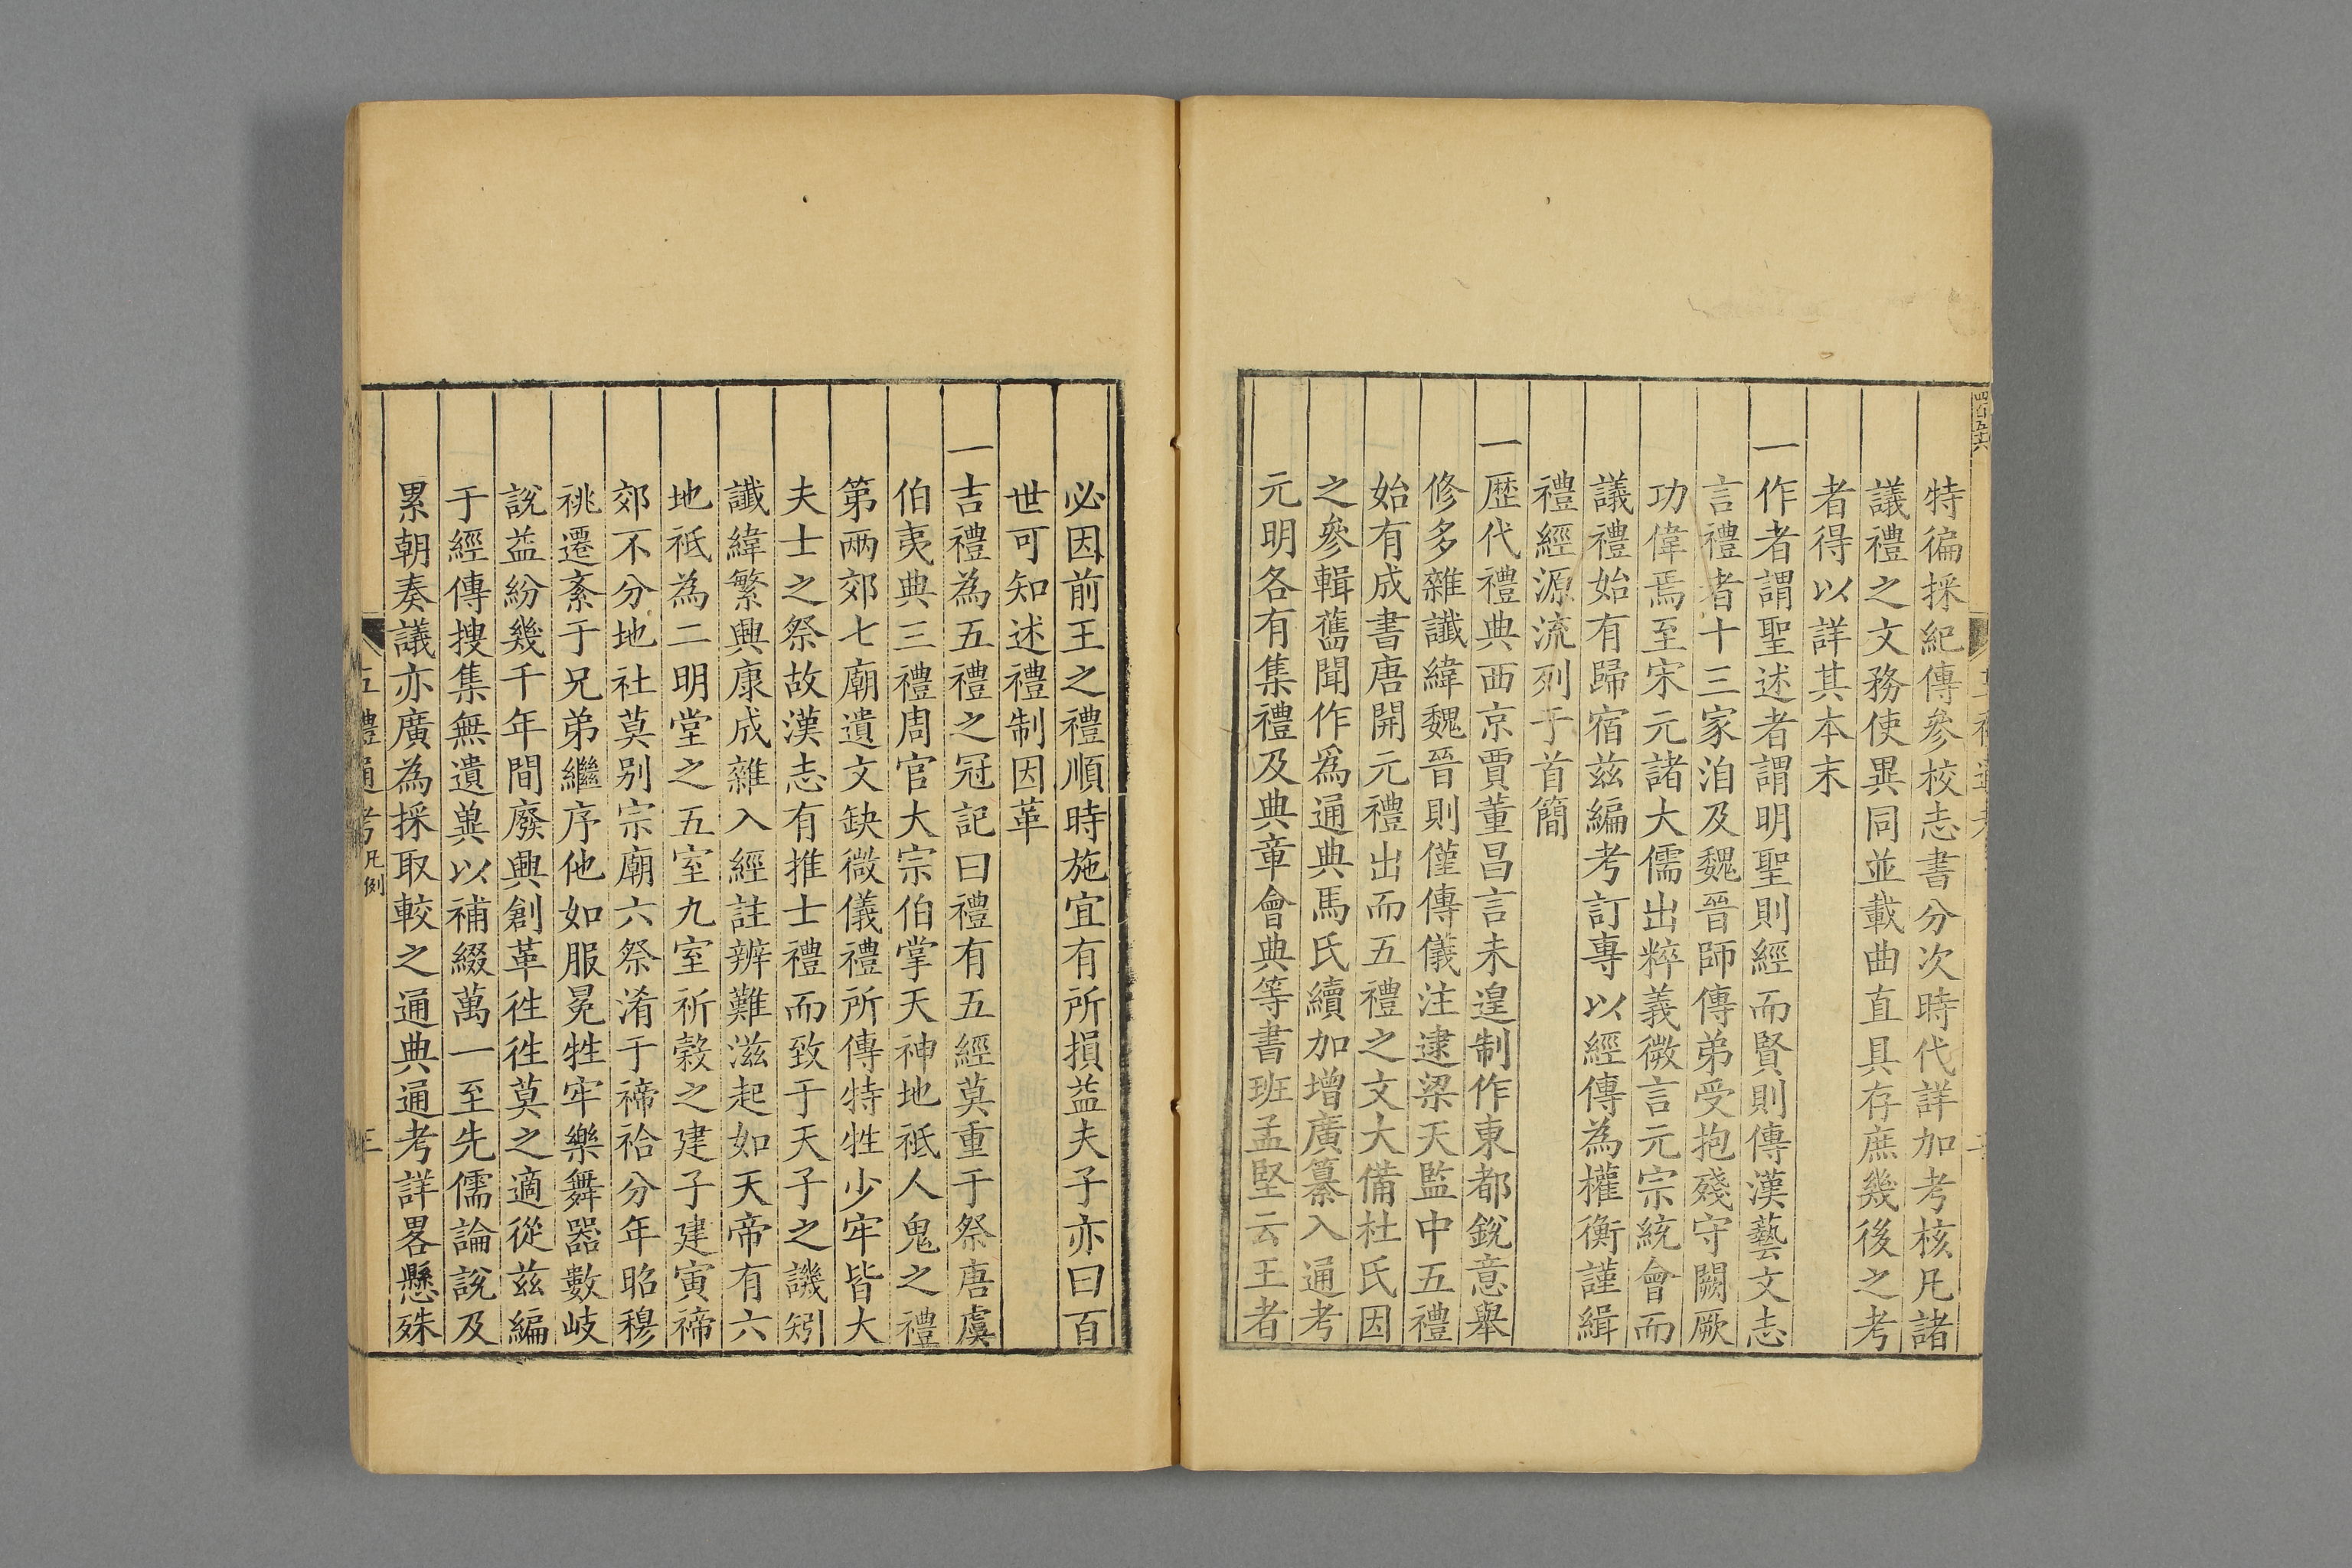 特徧採紀傳參校志書分次時代詳加考核凡諸
議禮之文務使異同並載曲直具存庶幾後之考
者得以詳其本末
一作者謂聖述者謂明聖則經而賢則傳漢藝文志
言禮者十三家洎及魏晉師傳弟受抱殘守闕厥
功偉焉至宋元諸大儒出粹義微言元宗統會而
議禮始有歸宿茲編考訂專以經傳為權衡謹緝
禮經源流列于首簡
一歴代禮典西京賈董昌言未遑制作東都銳意舉
修多雜讖緯魏晉則僅傳儀注逮梁天監中五禮
始有成書唐開元禮出而五禮之文大備杜氏因
之參輯舊聞作爲通典馬氏續加增廣纂入通考
元明各有集禮及典章會典等書班孟堅云王者
必因前王之禮順時施宜有所損益夫子亦曰百
世可知述禮制因革
一吉禮為五禮之冠記曰禮有五經莫重于祭唐虞
伯夷典三禮周官大宗伯掌天神地祗人鬼之禮
第兩郊七廟遺文缺微儀禮所傳特牲少牢皆大
夫士之祭故漢志有推士禮而致于天子之譏矧
讖緯繁興康成雜入經註辨難滋起如天帝有六
地祗為二明堂之五室九室祈穀之建子建寅禘
郊不分地社莫别宗廟六祭淆于禘祫分年昭穆
祧遷紊于兄弟繼序他如服冕牲牢樂舞器數岐
說益紛幾千年間廢興創革徃徃莫之適從茲編
于經傳搜集無遺兾以補綴萬一至先儒論說及
累朝奏議亦廣為採取較之通典通考詳畧懸殊
五禮通考 凡例 三